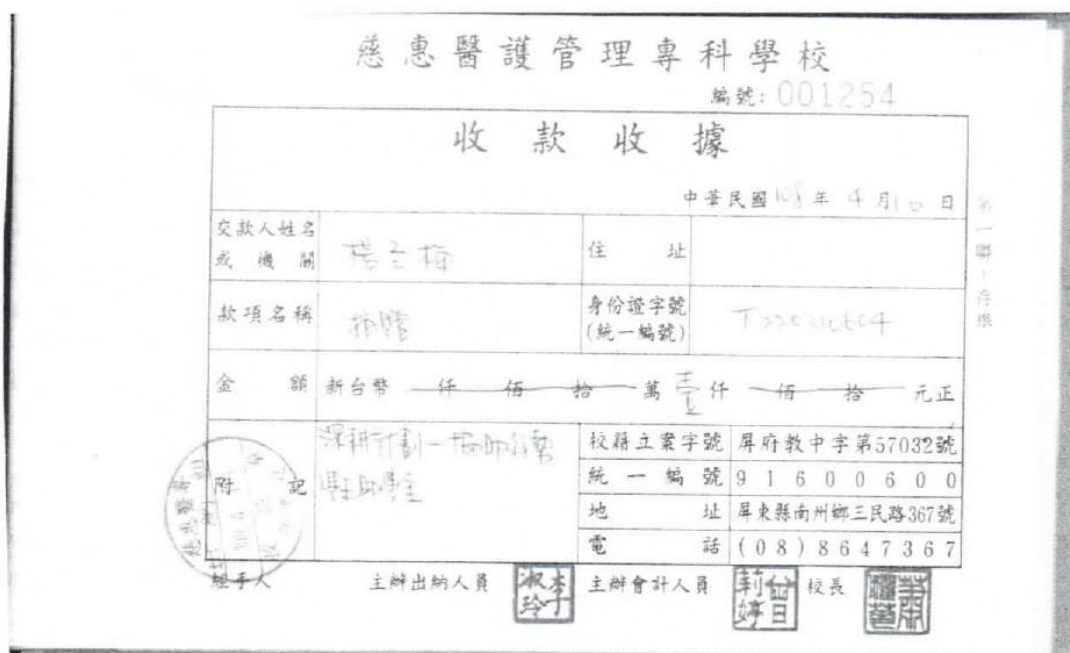 慈惠醫護管理專科學校
編號: 001254
收款收據
中華民國108年4月10日
交款人姓名或機關 楊 梅 住址
款項名稱 捐贈 身份證字號(統一編號)
金額 新台幣 仟 佰 拾 萬 壹 仟 佰 拾 元正
附記 深耕計劃-
校籍立案字號 屏府教中字第57032號
統一編號 91600600
地址 屏東縣南州鄉三民路367號
電話 (08)8647367
經手人 主辦出納人員 李淑玲 主辦會計人員 曾莉婷 校長
第一聯:存根